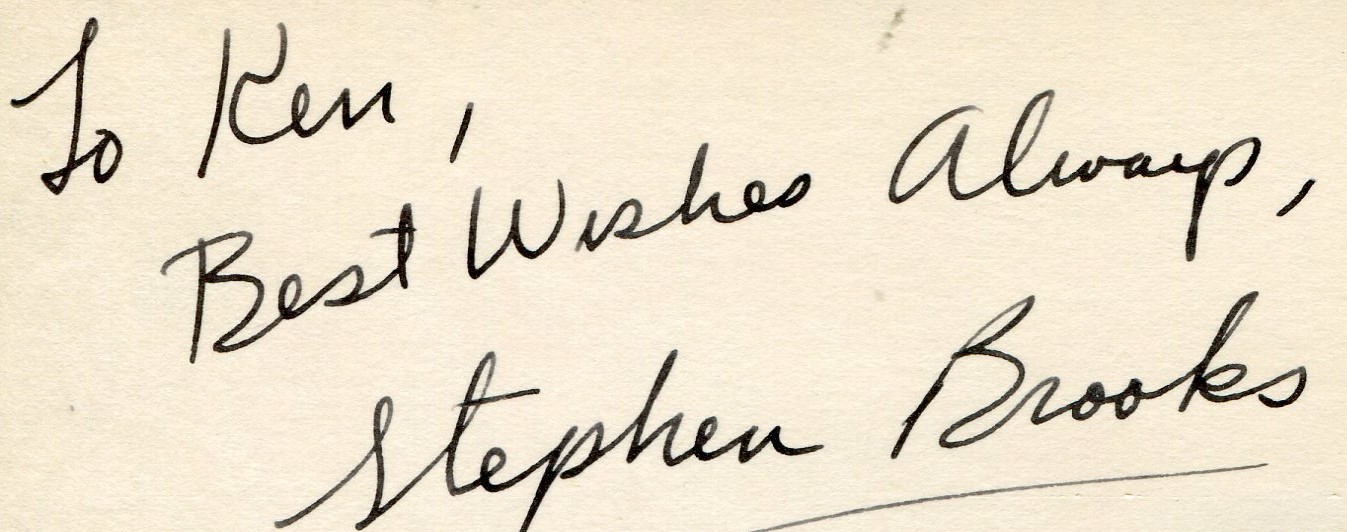 To Ken,
Best Wishes Always,
Stephen Brooks